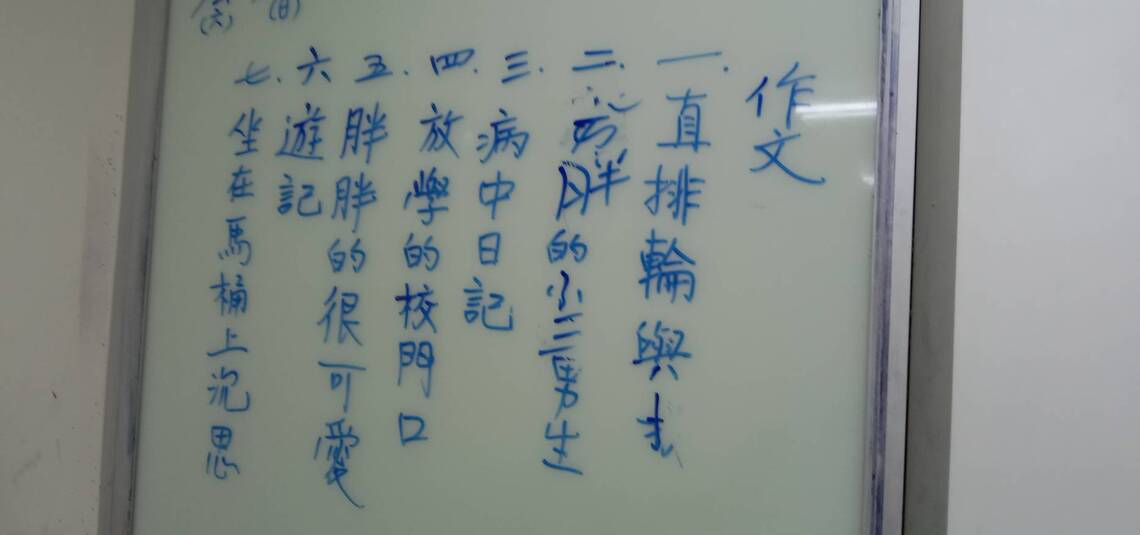 (六) (日)
作文
一.直排輪與我
二.肥胖的小三男生
三.病中日記
四.放學的校門口
五.胖胖的很可愛
六遊記
七.坐在馬桶上沉思